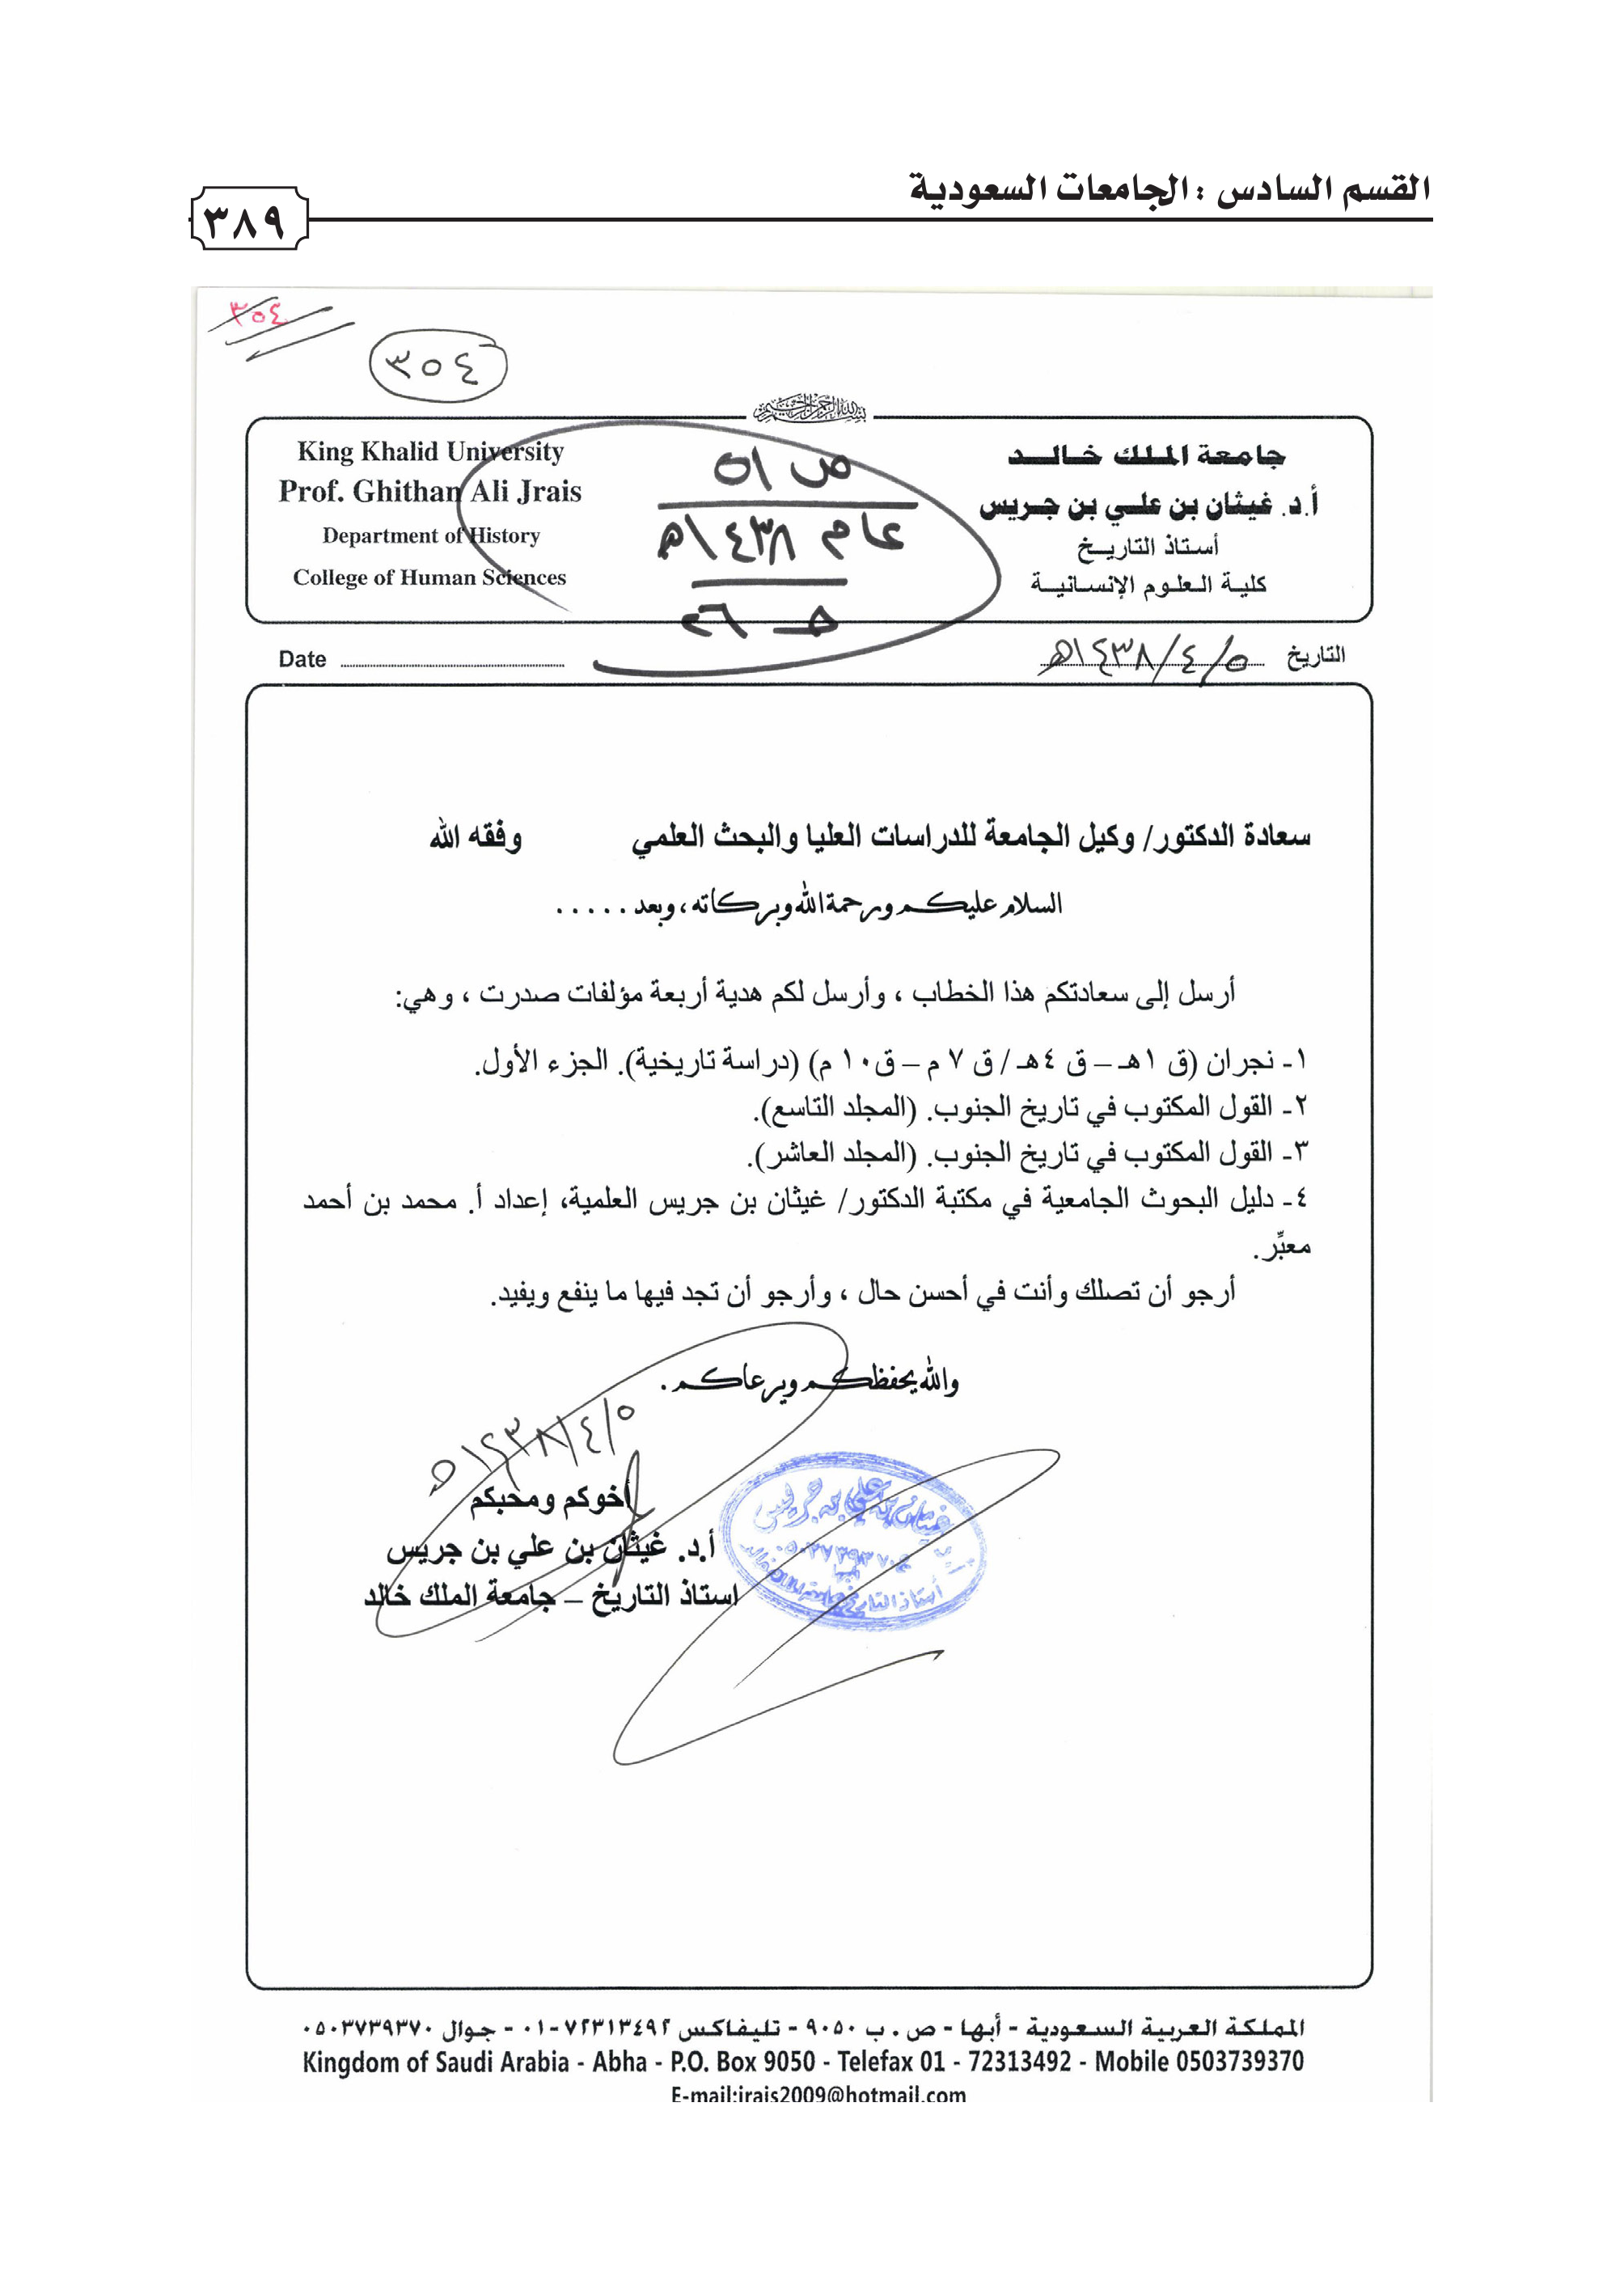 القسم السادس : الجامعات السعودية
٣٨٩
٣٥٤
٣٥٤
بسم الله الرحمن الرحيم
جامعة الملك خالد
أ.د. غيثان بن علي بن جريس
أستاذ التاريخ
كلية العلوم الإنسانية
King Khalid University
Prof. Ghithan Ali Jrais
Department of History
College of Human Sciences
ص ٥١
عام ١٤٣٨هـ
التاريخ ٥/٤/١٤٣٨هـ
Date
سعادة الدكتور/ وكيل الجامعة للدراسات العليا والبحث العلمي وفقه الله
السلام عليكم ورحمة الله وبركاته ، وبعد . . . . .
أرسل إلى سعادتكم هذا الخطاب ، وأرسل لكم هدية أربعة مؤلفات صدرت ، وهي:
١- نجران (ق ١هـ – ق ٤هـ / ق ٧ م – ق١٠ م) (دراسة تاريخية). الجزء الأول.
٢- القول المكتوب في تاريخ الجنوب. (المجلد التاسع).
٣- القول المكتوب في تاريخ الجنوب. (المجلد العاشر).
٤- دليل البحوث الجامعية في مكتبة الدكتور/ غيثان بن جريس العلمية، إعداد أ. محمد بن أحمد
معبِّر.
أرجو أن تصلك وأنت في أحسن حال ، وأرجو أن تجد فيها ما ينفع ويفيد.
والله يحفظكم ويرعاكم .
٥/٤/١٤٣٨هـ
أخوكم ومحبكم
أ.د. غيثان بن علي بن جريس
استاذ التاريخ – جامعة الملك خالد
غيثان بن علي بن جريس
أستاذ التاريخ بجامعة الملك خالد
المملكة العربية السعودية - أبها - ص . ب ٩٠٥٠ - تليفاكس ٧٢٣١٣٤٩٢-٠١ - جوال ٠٥٠٣٧٣٩٣٧٠
Kingdom of Saudi Arabia - Abha - P.O. Box 9050 - Telefax 01 - 72313492 - Mobile 0503739370
E-mail:jrais2009@hotmail.com